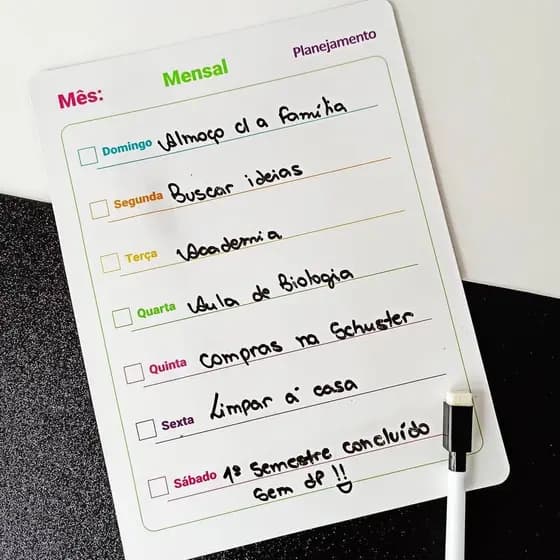 Planejamento
Mensal
Mês:
Domingo Almoço c/ a família
Segunda Buscar ideias
Terça Academia
Quarta Aula de Biologia
Quinta Compras na Schuster
Sexta Limpar a casa
Sábado 1º Semestre concluído
Sem DP !!